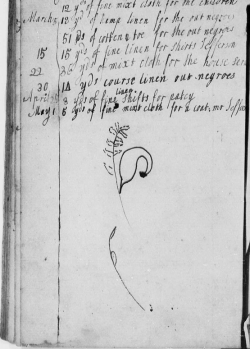 12 yds of fine mixt cloth for the children
March 12 yds of hemp linen for the out negroes
51 yds of cotten & tre for the out negroes
15 15 yds of fine linen for shirts Jefferson
22 36 yds of mixt cloth for the house serv
30 14 yds course linen out negroes
April 3 yds of fine linen shifts for patcy
May 1 6 yds of fine mixt cloth for a coat, mr Jeffer